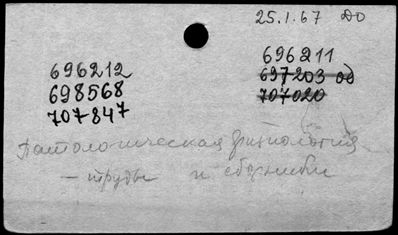 25.1.67 ДО
696212
698568
707847
696211
697203 од
707020
Патологическая физиология
— труды и сборники